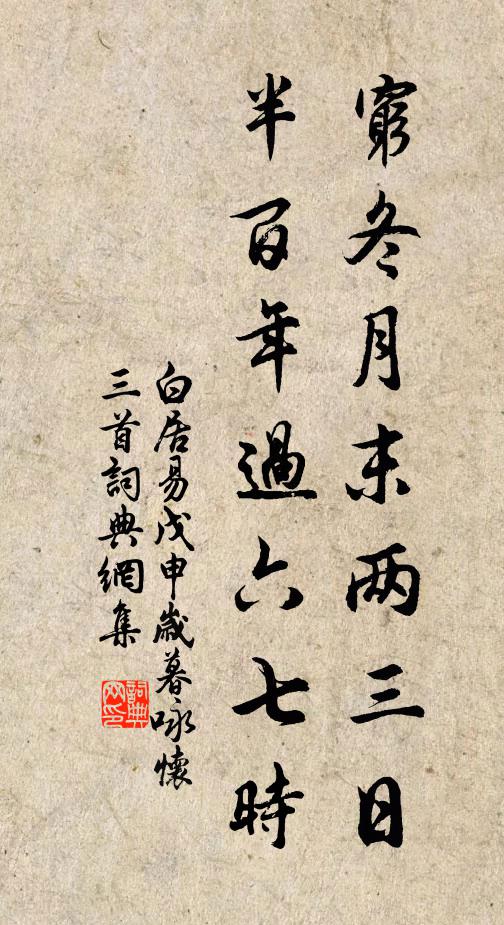 窮冬月末两三日
半百年過六七時
白居易戊申歲暮咏懷
三首詞典網集
詞典網印